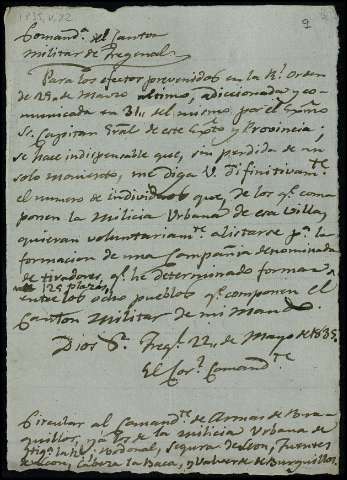 1835, V, 22
9
Comand.ª del Canton
Militar de Fregenal
Para los efectos prevenidos en la R.l Orden
de 29,, de Marzo ultimo, adiccionada y co-
municada en 31,, del mismo, por el Exmo
Sr. Capitan Gral de este Exto y Provincia;
se hace indispensable que, sin perdida de un
solo momento, me diga V. difinitivam.te
el numero de individuos que, de los q.e com-
ponen la Milicia Urbana de esa Villa,
quieran voluntariam.te alistarse p.ª la
formacion de una Compañia denominada
de tiradores, q.e he determinado formar
de 129 plazas,
entre los ocho pueblos q.e componen el
Canton Militar de mi mando.
Dios &.ª Freg.l 22,, de Mayo de 1835.
El Cor.l Comand.te
Circular al Comand.te de Armas de Bur-
guillos, y á los de la Milicia Urbana de
Hig.ª la R.l, Bodonal, Segura de Leon, Fuentes
de Leon, Cabeza la Baca, y Valverde de Burguillos.